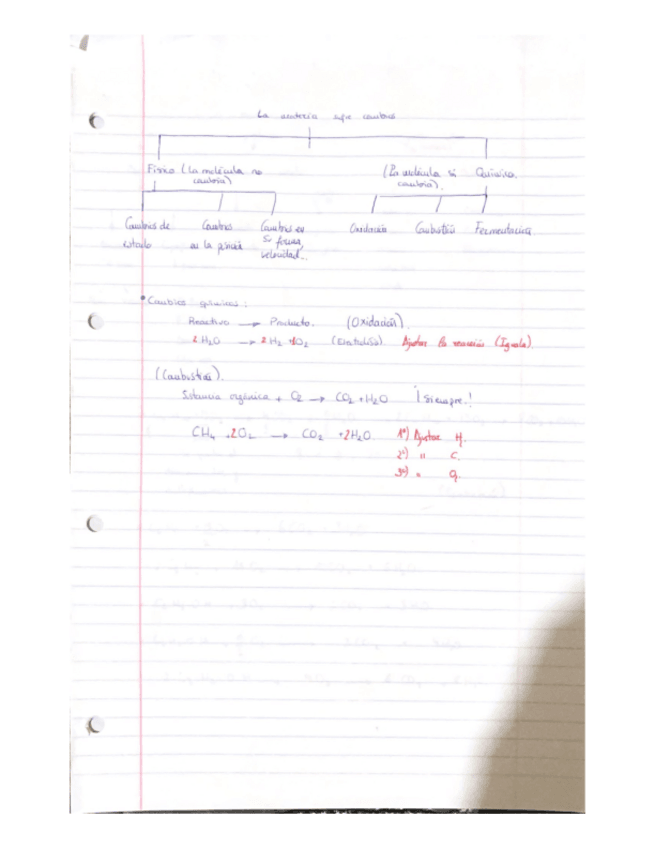 La materia sufre cambios
Físico (La molécula no cambia)
(La molécula si cambia). Químico.
Cambios de estado
Cambios en la posición
Cambios en su forma, velocidad...
Oxidación
Combustión
Fermentación
• Cambios químicos:
Reactivo → Producto. (Oxidación).
2 H2O → 2 H2 + O2 Ajustar la reacción (Iguala).
(Combustión).
Sustancia orgánica + O2 → CO2 + H2O ¡Siempre!
CH4 + 2O2 → CO2 + 2H2O. 1º) Ajustar H.
2º) " C.
3º) " O.